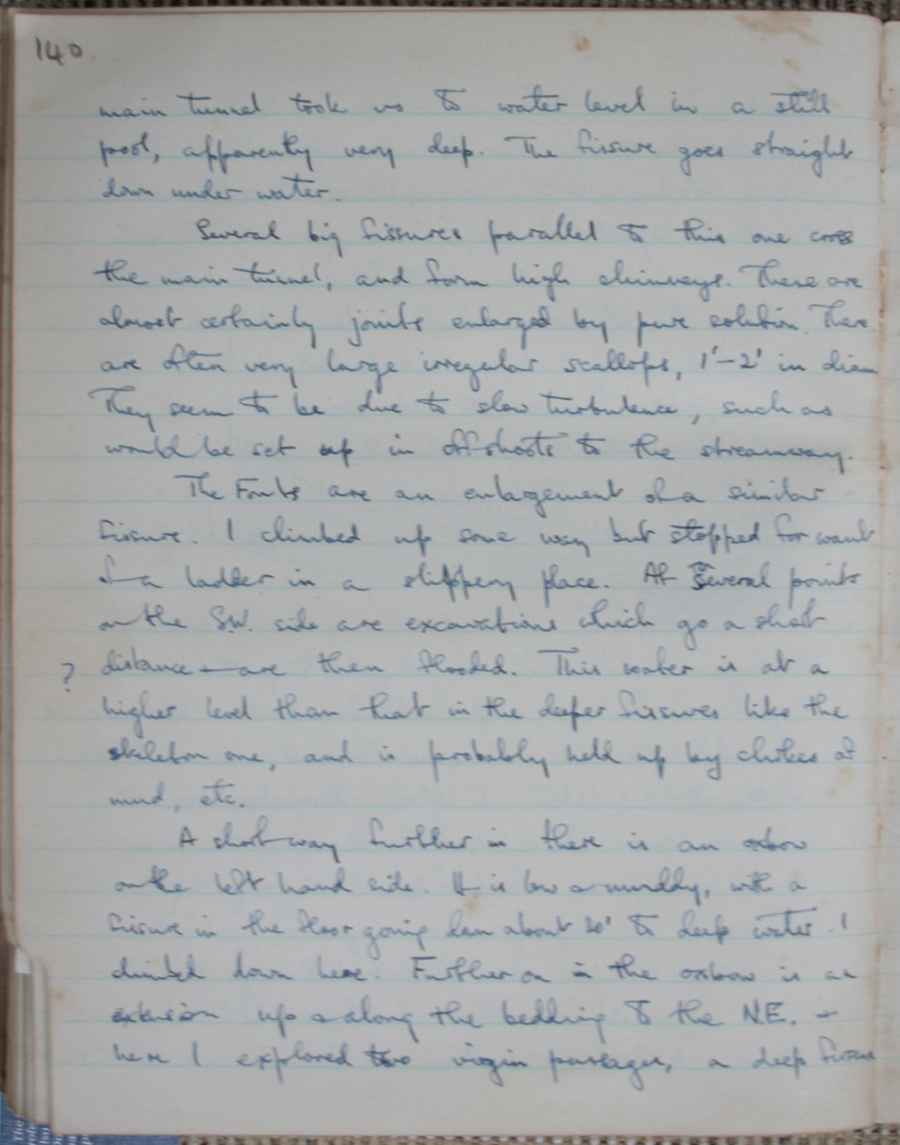 140
main tunnel took us to water level in a still
pool, apparently very deep. The fissure goes straight
down under water.
Several big fissures parallel to this one cross
the main tunnel, and form high chimneys. These are
almost certainly joints enlarged by pure solution. There
are often very large irregular scallops, 1'-2' in diam
They seem to be due to slow turbulence, such as
would be set up in offshoots to the streamway.
The Fonts are an enlargement of a similar
fissure. I climbed up some way but stopped for want
of a ladder in a slippery place. At several points
on the S.W. side are excavations which go a short
? distance + are then flooded. This water is at a
higher level than that in the deeper fissures like the
skeleton one, and is probably held up by chokes of
mud, etc.
A short way further in there is an oxbow
on the left hand side. It is low & muddy, with a
fissure in the floor going down about 20' to deep water. I
climbed down here. Further on in the oxbow is an
extension up & along the bedding to the N.E. +
here I explored two virgin passages, a deep fissure